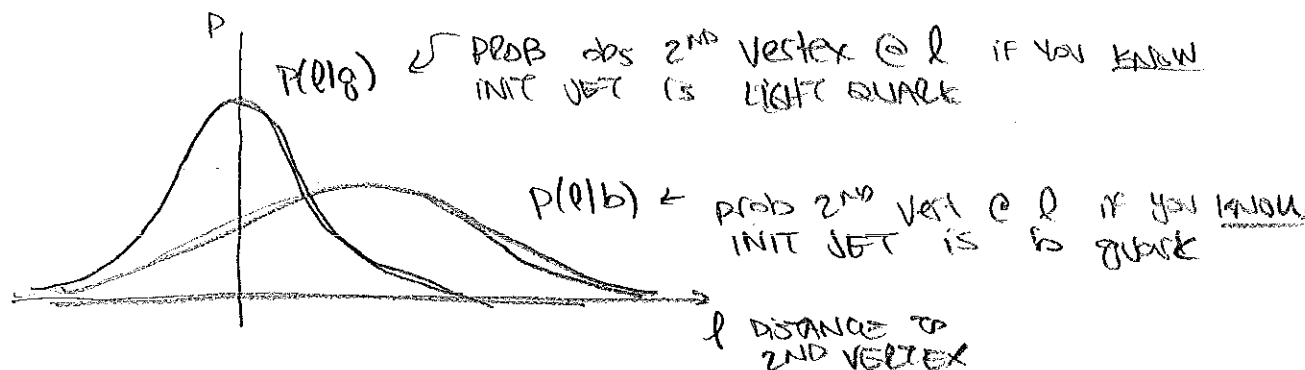 P
P(l|q) PROB obs 2ND Vertex @ l if YOU KNOW
INIT JET is LIGHT QUARK
P(l|b) ← prob 2ND vert @ l if you KNOW
INIT JET is b quark
l DISTANCE TO
2ND VERTEX